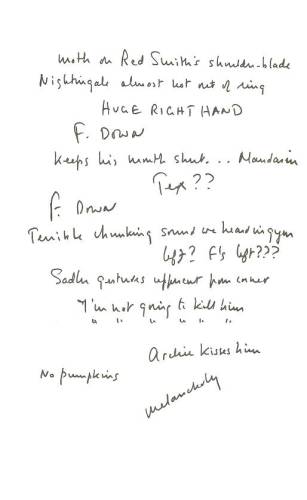 moth on Red Smith's shoulder-blade
Nightingale almost hot out of ring
HUGE RIGHT HAND
F. DOWN
Keeps his mouth shut... Mandarin
Tex??
F. DOWN
Terrible chunking sound we heard in gym
left? F's left???
Sadler gestures uppercut from corner
"I'm not going to kill him
" " " " " "
Archie kisses him
No pumpkins
melancholy